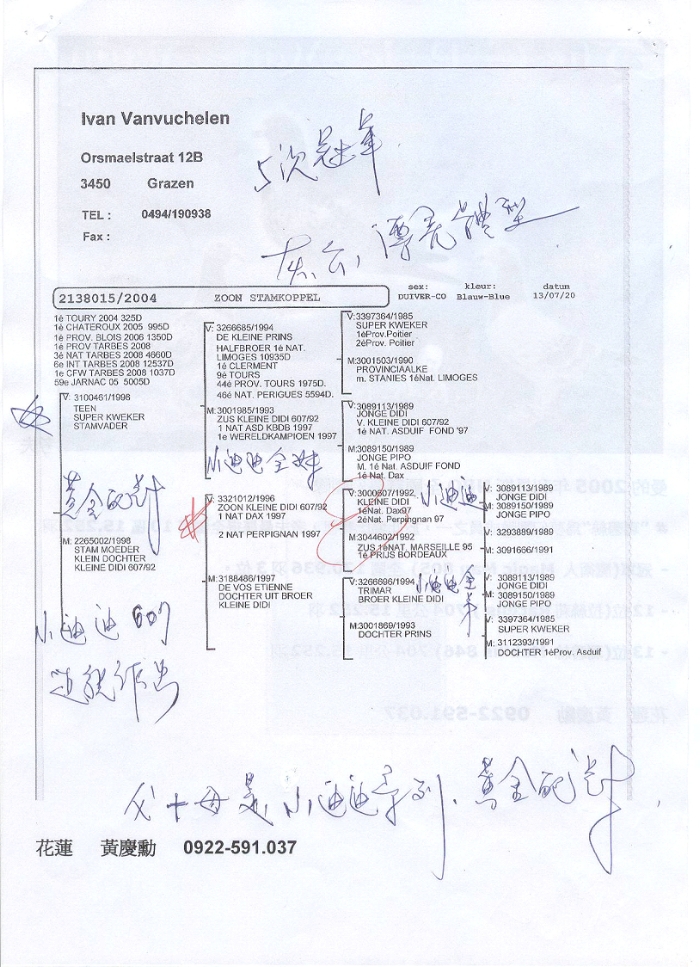 Ivan Vanvuchelen
Orsmaelstraat 12B
3450 Grazen
TEL : 0494/190938
Fax :
5次冠军
灰. 体型
2138015/2004 ZOON STAMKOPPEL
sex: kleur: datum
DUIVER-CO Blauw-Blue 13/07/20
1è TOURY 2004 325D
1è CHATEROUX 2005 995D
1è PROV. BLOIS 2006 1350D
1è PROV TARBES 2008
3è NAT TARBES 2008 4660D
6e INT TARBES 2008 12537D
1e CFW TARBES 2008 1037D
59e JARNAC 05 5005D
V: 3100461/1998
TEEN
SUPER KWEKER
STAMVADER
黄金配对
M: 2265002/1998
STAM MOEDER
KLEIN DOCHTER
KLEINE DIDI 607/92
小迪迪 607
V: 3266685/1994
DE KLEINE PRINS
HALFBROER 1è NAT.
LIMOGES 10935D
1è CLERMENT
9è TOURS
44è PROV. TOURS 1975D.
46è NAT. PERIGUES 5594D.
M:3001985/1993
ZUS KLEINE DIDI 607/92
1 NAT ASD KBDB 1997
1e WERELDKAMPIOEN 1997
小迪迪全妹
V: 3321012/1996
ZOON KLEINE DIDI 607/92
1 NAT DAX 1997
2 NAT PERPIGNAN 1997
M:3188486/1997
DE VOS ETIENNE
DOCHTER UIT BROER
KLEINE DIDI
V:3397364/1985
SUPER KWEKER
1èProv.Poitier
2èProv. Poitier
M:3001503/1990
PROVINCIAALKE
m. STANIES 1èNat. LIMOGES
V:3089113/1989
JONGE DIDI
V. KLEINE DIDI 607/92
1è NAT. ASDUIF FOND '97
M:3089150/1989
JONGE PIPO
M. 1è Nat. ASDUIF FOND
1è Nat. Dax
V:3000607/1992
KLEINE DIDI
1èNat. Dax9
2èNat. Perpingnan 97
小迪迪
M:3044602/1992
ZUS 1èNAT. MARSEILLE 95
1è PRIJS BORDEAUX
V:3266696/1994
TRIMAR
BROER KLEINE DIDI
小迪迪全
M:3001869/1993
DOCHTER PRINS
V: 3089113/1989
JONGE DIDI
M: 3089150/1989
JONGE PIPO
V: 3293889/1989
M: 3091666/1991
V: 3089113/1989
JONGE DIDI
M: 3089150/1989
JONGE PIPO
V: 3397364/1985
SUPER KWEKER
M: 3112393/1991
DOCHTER 1èProv. Asduif
父十母是小迪迪系列. 黄金配对.
花蓮 黃慶勳 0922-591.037